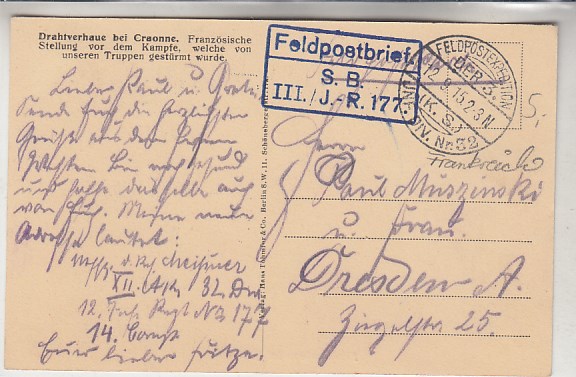 Drahtverhaue bei Craonne. Französische
Stellung vor dem Kampfe, welche von
unseren Truppen gestürmt wurde.
Feldpostbrief
S. B.
III./J.-R. 177.
FELDPOSTEXPEDITION
DER 3.
12.9.15.2-3N
(K. S.)
INF. DIV. Nr. 32
5,-
Frankreich
Lieber Paul u. Grete
Sende Euch die herzlichsten
Grüße aus dem Fernen
Westen. Bin noch gesund
und hoffe dasselbe auch
von Euch. Meine neue
Adresse lautet:
XII. A.K. 32. Div
12. Inf. Regt No 177
14. Comp
Euer lieber Fritze.
Herrn
Paul Muszinski
u. Frau.
Dresden A.
Ziegelstr 25.
Verlag: Hans Berlin S.W. 11.